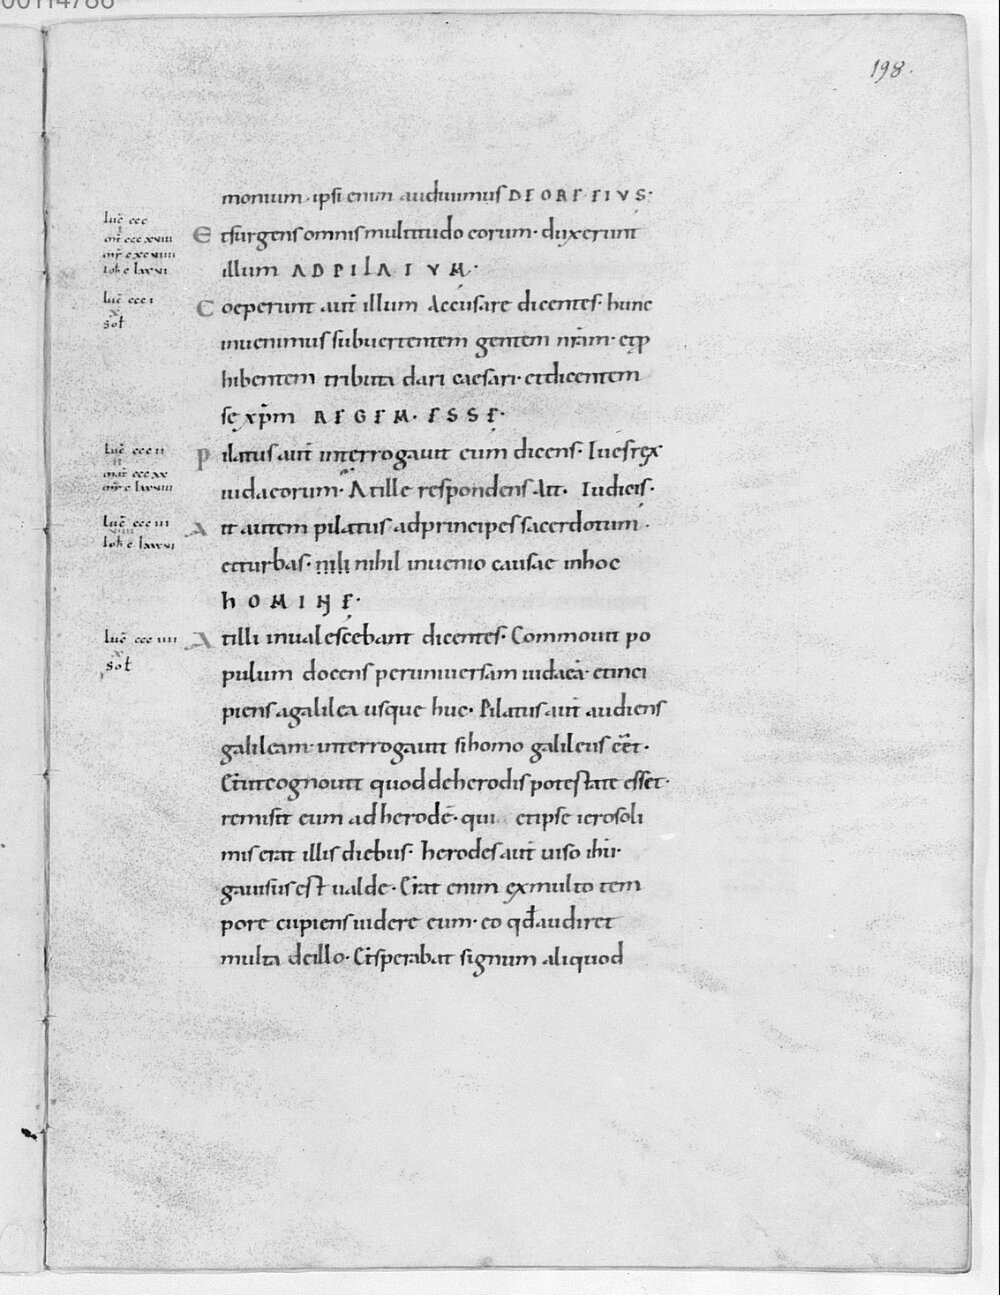 198.
monium· ipsi enim audiuimus DE ORE EIVS·
luc̄ ccc
Et surgens omnis multitudo eorum· duxerunt
mr̄ ccc xviiii
illum AD PILATVM·
ioh̄ c lxxvi
luc̄ ccc i
Coeperunt aut̄ illum Accusare dicentes· hunc
x
sol̄
inuenimus subuertentem gentem nr̄am· et p
hibentem tributa dari caesari· et dicentem
se xp̄m REGEM· ESSE·
luc̄ ccc ii
Pilatus aut̄ interrogauit eum dicens· Tu es rex
ii
mat̄ ccc xx
iudaeorum· At ille respondens Ait· Tu dicis·
luc̄ ccc iii
Ait autem pilatus ad principes sacerdotum·
ioh̄ c lxxxvi
et turbas· nili nihil inuenio causae in hoc
HOMINE·
luc̄ ccc iiii
At illi inualescebant dicentes· Commouit po
x
sol̄
pulum docens per uniuersam iudaeā· et inci
piens a galilea usque huc· Pilatus aut̄ audiens
galileam· interrogauit si homo galileus eēt·
Et ut cognouit quod de herodis potestate esset·
remisit eum ad herodē· qui et ipse ierosoli
mis erat illis diebus· herodes aut̄ uiso ih̄u·
gauisus est ualde· Erat enim ex multo tem
pore cupiens uidere eum· eo qđ audiret
multa de illo· Et sperabat signum aliquod